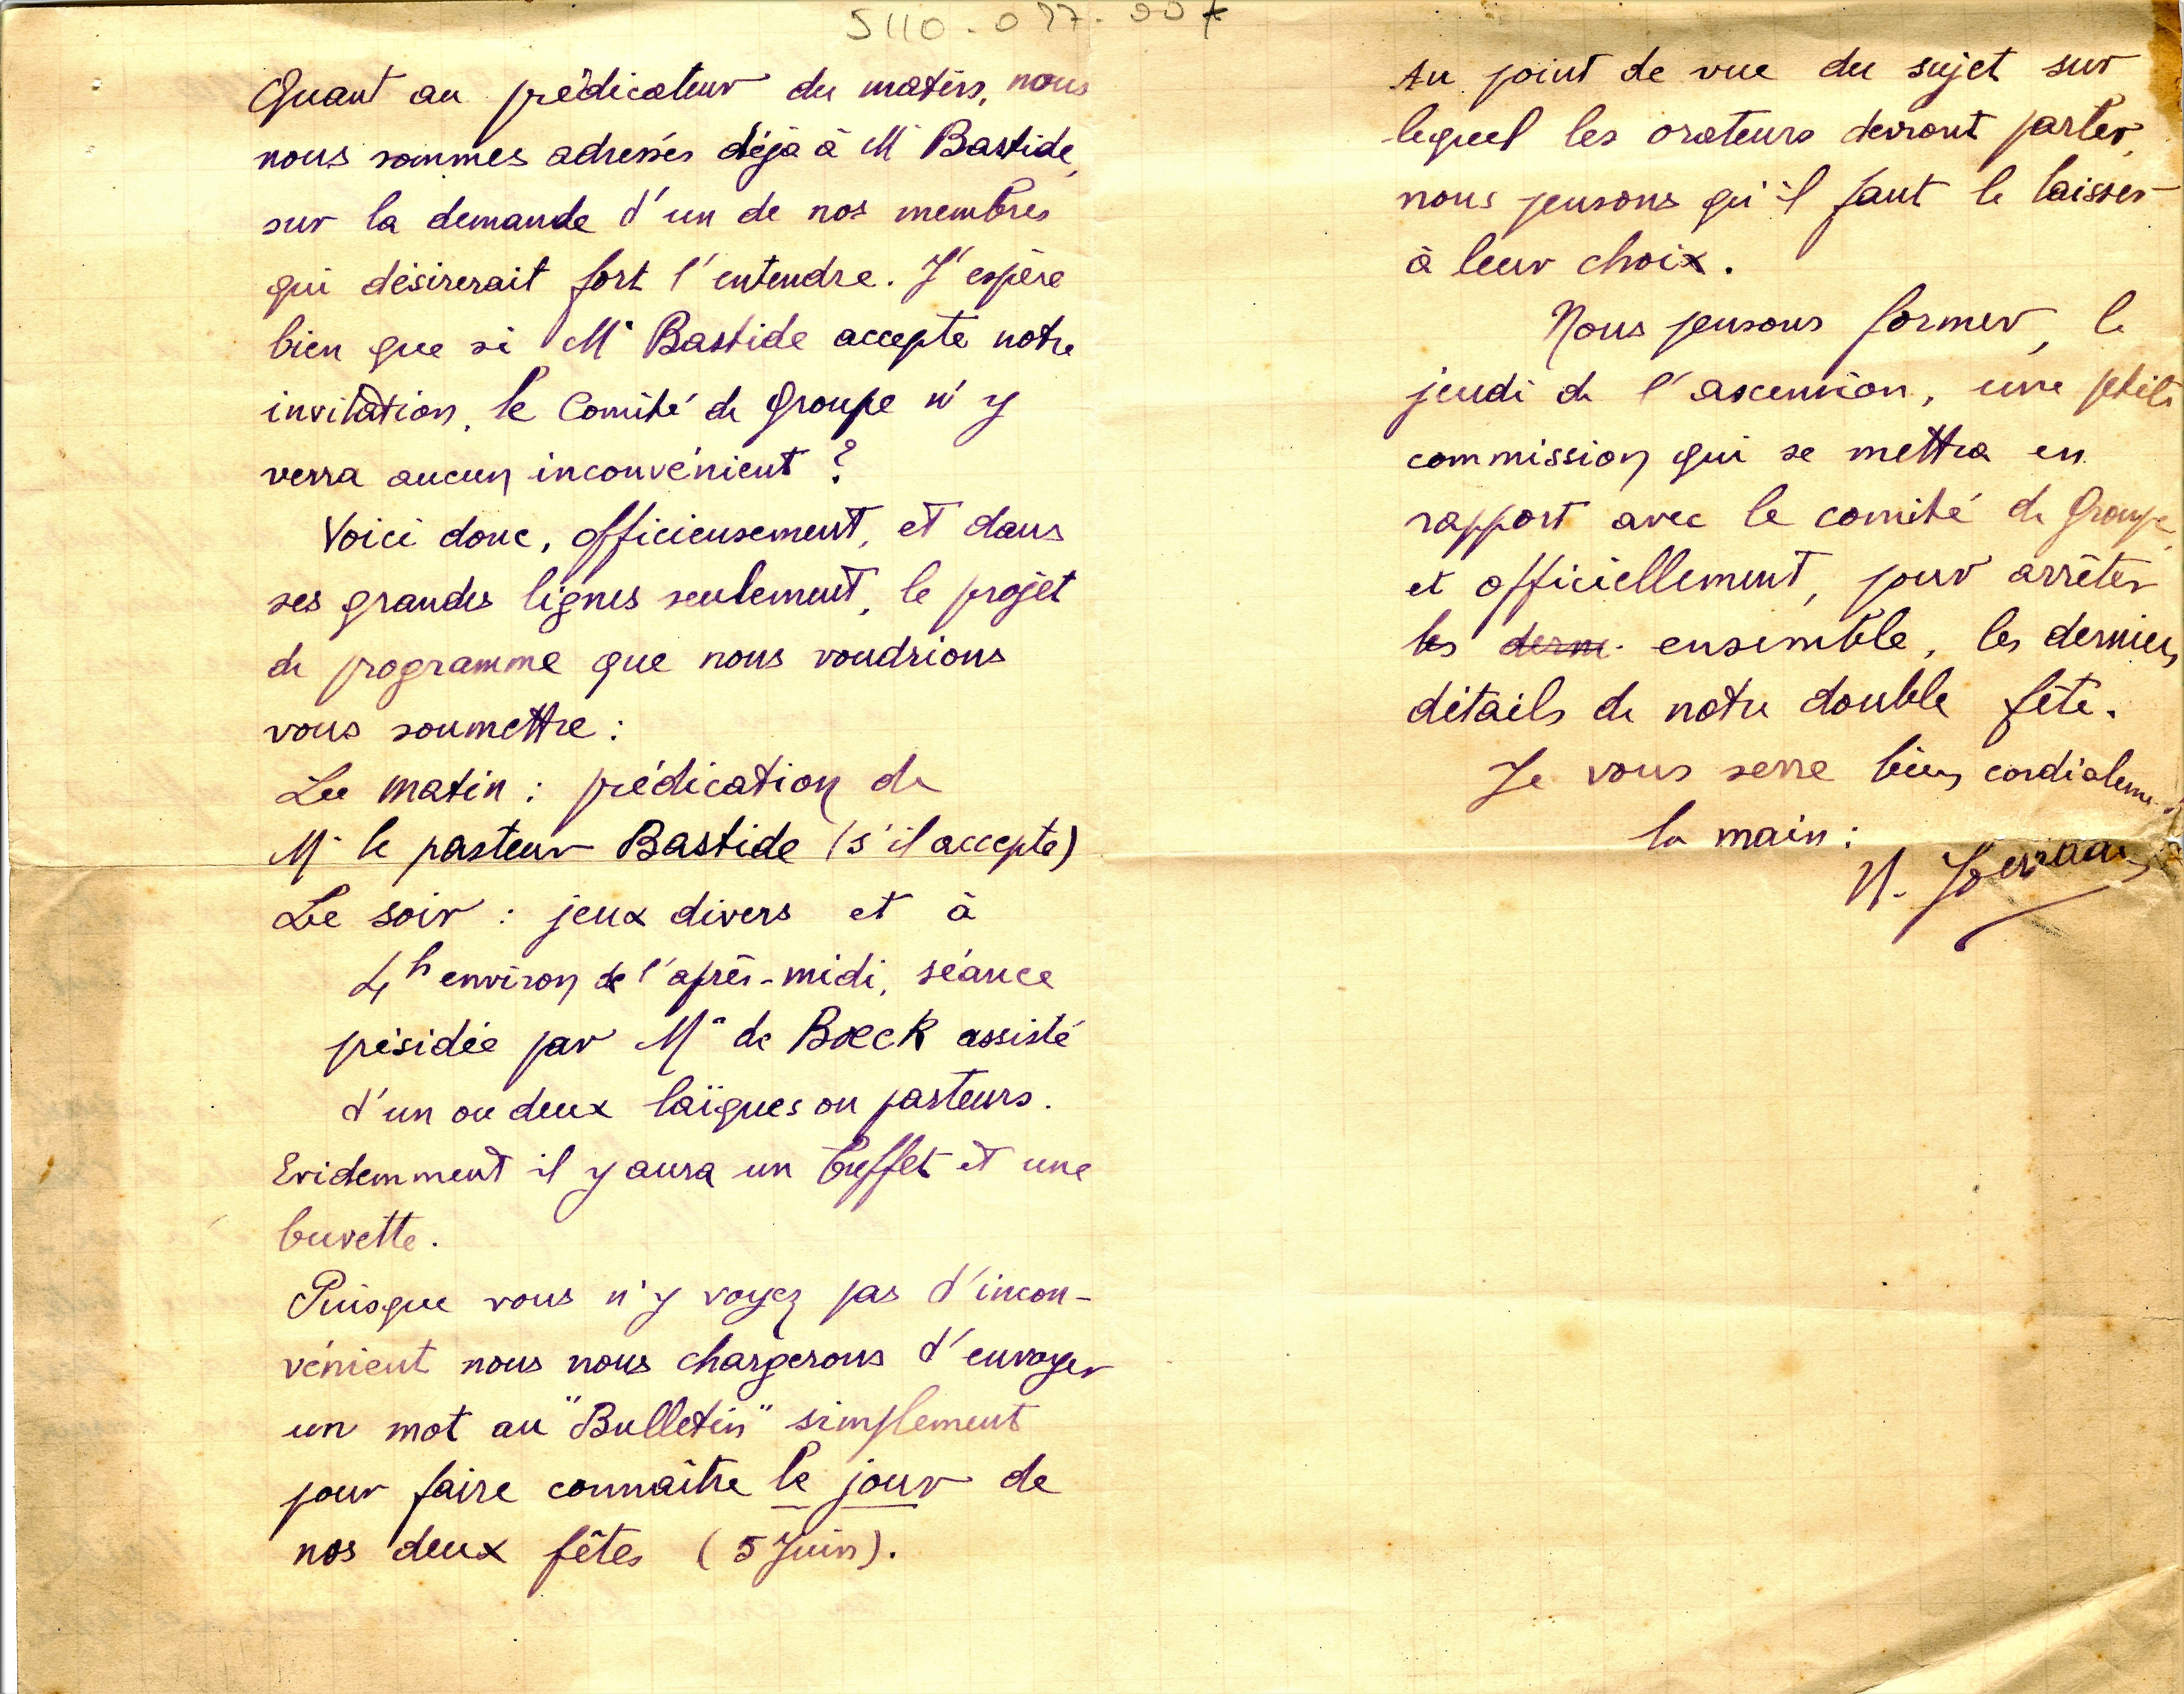 5110.077.00
Quant au prédicateur du matin, nous
nous sommes adressés déjà à Mr Bastide,
sur la demande d'un de nos membres
qui désirerait fort l'entendre. J'espère
bien que si Mr Bastide accepte notre
invitation, le Comité de Groupe n'y
verra aucun inconvénient ?
Voici donc, officieusement, et dans
ses grandes lignes seulement, le projet
de programme que nous voudrions
vous soumettre :
Le matin : prédication de
Mr le pasteur Bastide (s'il accepte)
Le soir : jeux divers et à
4h environ de l'après-midi, séance
présidée par Mr de Boeck assisté
d'un ou deux laïques ou pasteurs.
Evidemment il y aura un buffet et une
buvette.
Puisque vous n'y voyez pas d'incon-
vénient nous nous chargerons d'envoyer
un mot au "Bulletin" simplement
pour faire connaître le jour de
nos deux fêtes (5 Juin).
Au point de vue du sujet sur
lequel les orateurs devront parler,
nous pensons qu'il faut le laisser
à leur choix.
Nous pensons former, le
jeudi de l'ascension, une petite
commission qui se mettra en
rapport avec le comité de Groupe,
et officiellement, pour arrêter
les derni ensemble, les derniers
détails de notre double fête.
Je vous serre bien cordialeme
la main :